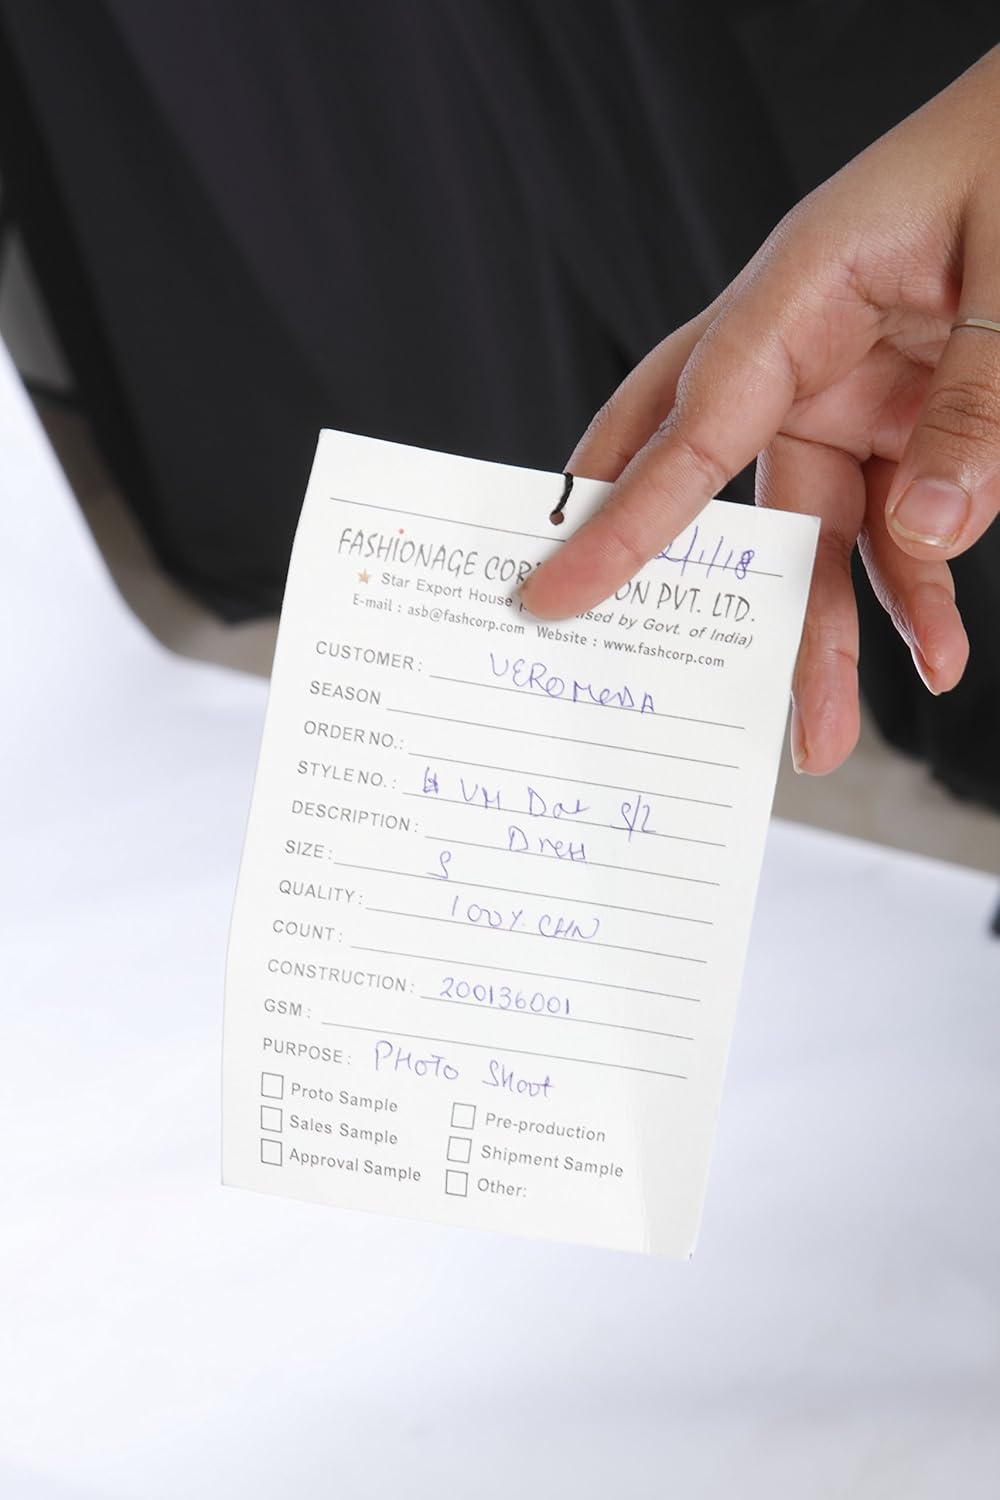 2/1/18
FASHIONAGE COR ON PVT. LTD.
Star Export House ised by Govt. of India)
E-mail : asb@fashcorp.com Website : www.fashcorp.com
CUSTOMER: VEROMODA
SEASON
ORDER NO.:
STYLE NO.: VM Dot S/L
DESCRIPTION: Dress
SIZE: S
QUALITY: 100%
COUNT:
CONSTRUCTION: 200136001
GSM:
PURPOSE: PHOTO SHOOT
Proto Sample Pre-production
Sales Sample Shipment Sample
Approval Sample Other: